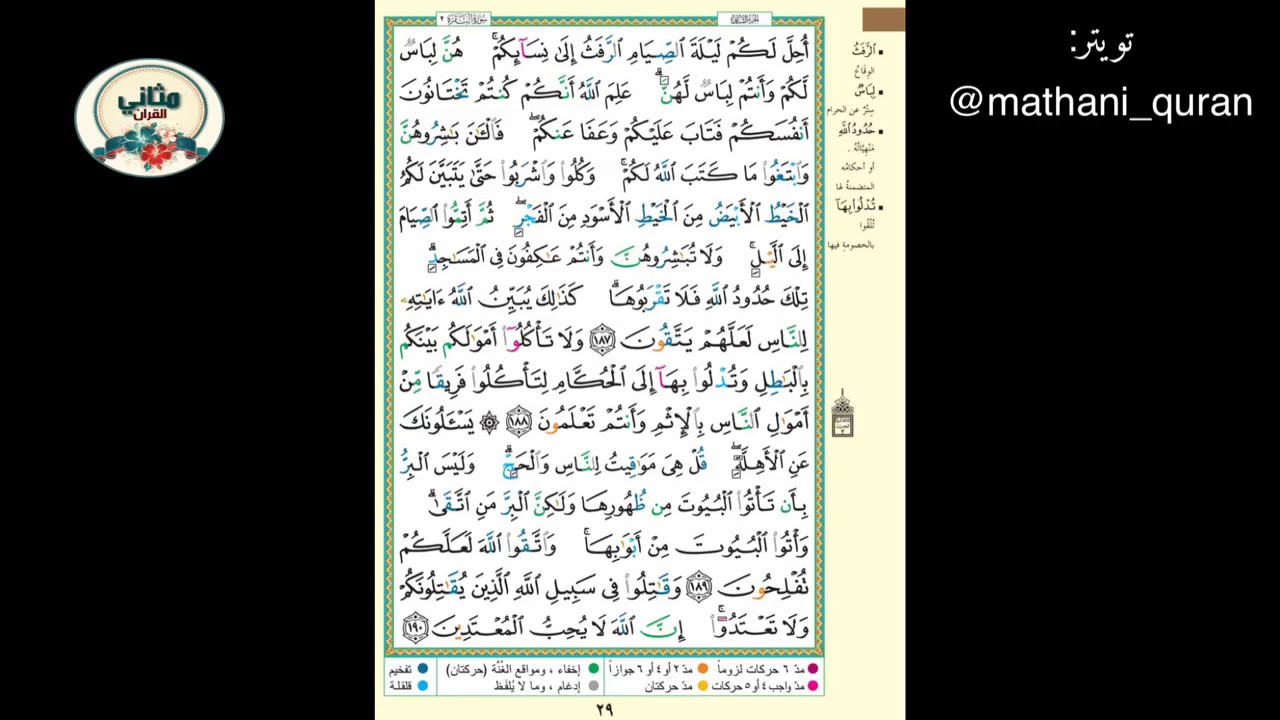 سورة البقرة ٢
الجزء الثاني
أُحِلَّ لَكُمْ لَيْلَةَ ٱلصِّيَامِ ٱلرَّفَثُ إِلَىٰ نِسَآئِكُمْ ۚ هُنَّ لِبَاسٌ
لَّكُمْ وَأَنتُمْ لِبَاسٌ لَّهُنَّ ۗ عَلِمَ ٱللَّهُ أَنَّكُمْ كُنتُمْ تَخْتَانُونَ
أَنفُسَكُمْ فَتَابَ عَلَيْكُمْ وَعَفَا عَنكُمْ ۖ فَٱلْـَٔـٰنَ بَـٰشِرُوهُنَّ
وَٱبْتَغُوا۟ مَا كَتَبَ ٱللَّهُ لَكُمْ ۚ وَكُلُوا۟ وَٱشْرَبُوا۟ حَتَّىٰ يَتَبَيَّنَ لَكُمُ
ٱلْخَيْطُ ٱلْأَبْيَضُ مِنَ ٱلْخَيْطِ ٱلْأَسْوَدِ مِنَ ٱلْفَجْرِ ۖ ثُمَّ أَتِمُّوا۟ ٱلصِّيَامَ
إِلَى ٱلَّيْلِ ۚ وَلَا تُبَـٰشِرُوهُنَّ وَأَنتُمْ عَـٰكِفُونَ فِى ٱلْمَسَـٰجِدِ ۗ
تِلْكَ حُدُودُ ٱللَّهِ فَلَا تَقْرَبُوهَا ۗ كَذَٰلِكَ يُبَيِّنُ ٱللَّهُ ءَايَـٰتِهِۦ
لِلنَّاسِ لَعَلَّهُمْ يَتَّقُونَ ١٨٧ وَلَا تَأْكُلُوٓا۟ أَمْوَٰلَكُم بَيْنَكُم
بِٱلْبَـٰطِلِ وَتُدْلُوا۟ بِهَآ إِلَى ٱلْحُكَّامِ لِتَأْكُلُوا۟ فَرِيقًا مِّنْ
أَمْوَٰلِ ٱلنَّاسِ بِٱلْإِثْمِ وَأَنتُمْ تَعْلَمُونَ ١٨٨ ۞ يَسْـَٔلُونَكَ
عَنِ ٱلْأَهِلَّةِ ۖ قُلْ هِىَ مَوَٰقِيتُ لِلنَّاسِ وَٱلْحَجِّ ۗ وَلَيْسَ ٱلْبِرُّ
بِأَن تَأْتُوا۟ ٱلْبُيُوتَ مِن ظُهُورِهَا وَلَـٰكِنَّ ٱلْبِرَّ مَنِ ٱتَّقَىٰ ۗ
وَأْتُوا۟ ٱلْبُيُوتَ مِنْ أَبْوَٰبِهَا ۚ وَٱتَّقُوا۟ ٱللَّهَ لَعَلَّكُمْ
تُفْلِحُونَ ١٨٩ وَقَـٰتِلُوا۟ فِى سَبِيلِ ٱللَّهِ ٱلَّذِينَ يُقَـٰتِلُونَكُمْ
وَلَا تَعْتَدُوٓا۟ ۚ إِنَّ ٱللَّهَ لَا يُحِبُّ ٱلْمُعْتَدِينَ ١٩٠
الرَّفَثُ
الوِقَاعُ
لِبَاسٌ
سِتْرٌ عن الحرام
حُدُودُ اللَّهِ
مَنْهِيَّاتُهُ .
أو أحكامُه
المتضمنةُ لها
تُدْلُوا بِهَآ
تُلْقُوا
بالخصومةِ فيها
مدّ ٦ حركات لزوماً
مدّ ٢ أو ٤ أو ٦ جوازاً
إخفاء ، ومواقع الغُنَّة (حركتان)
تفخيم
مدّ واجب ٤ أو ٥ حركات
مدّ حركتان
إدغام ، وما لا يُلفَظ
قلقلة
٢٩
تويتر:
@mathani_quran
مثاني
القرآن